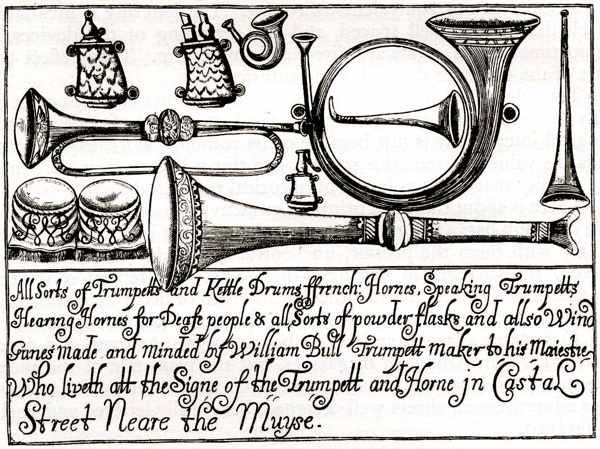 All Sorts of Trumpetts and Kettle Drums ffrench; Hornes, Speaking Trumpetts
Hearing Hornes for Deafe people & all Sorts of powder flasks and allso Wind
Gunes made and minded by William Bull Trumpett maker to his Maiestie
Who liveth att the Signe of the Trumpett and Horne jn Castal
Street Neare the Muyse.